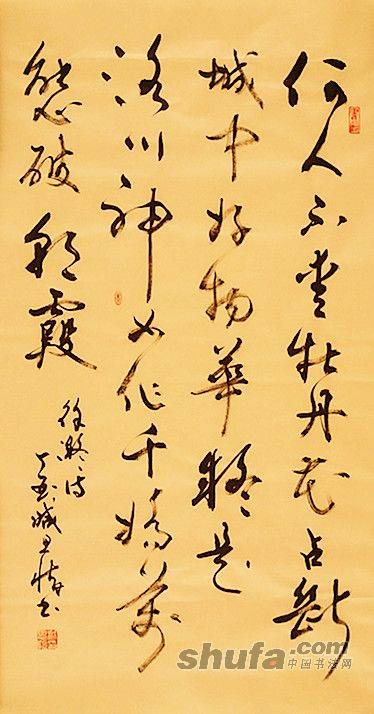 何人不愛牡丹花占斷
城中好物華疑是
洛川神女作千嬌萬
態破朝霞
徐凝诗
丁亥歲王书
shufa.com
中国书法网